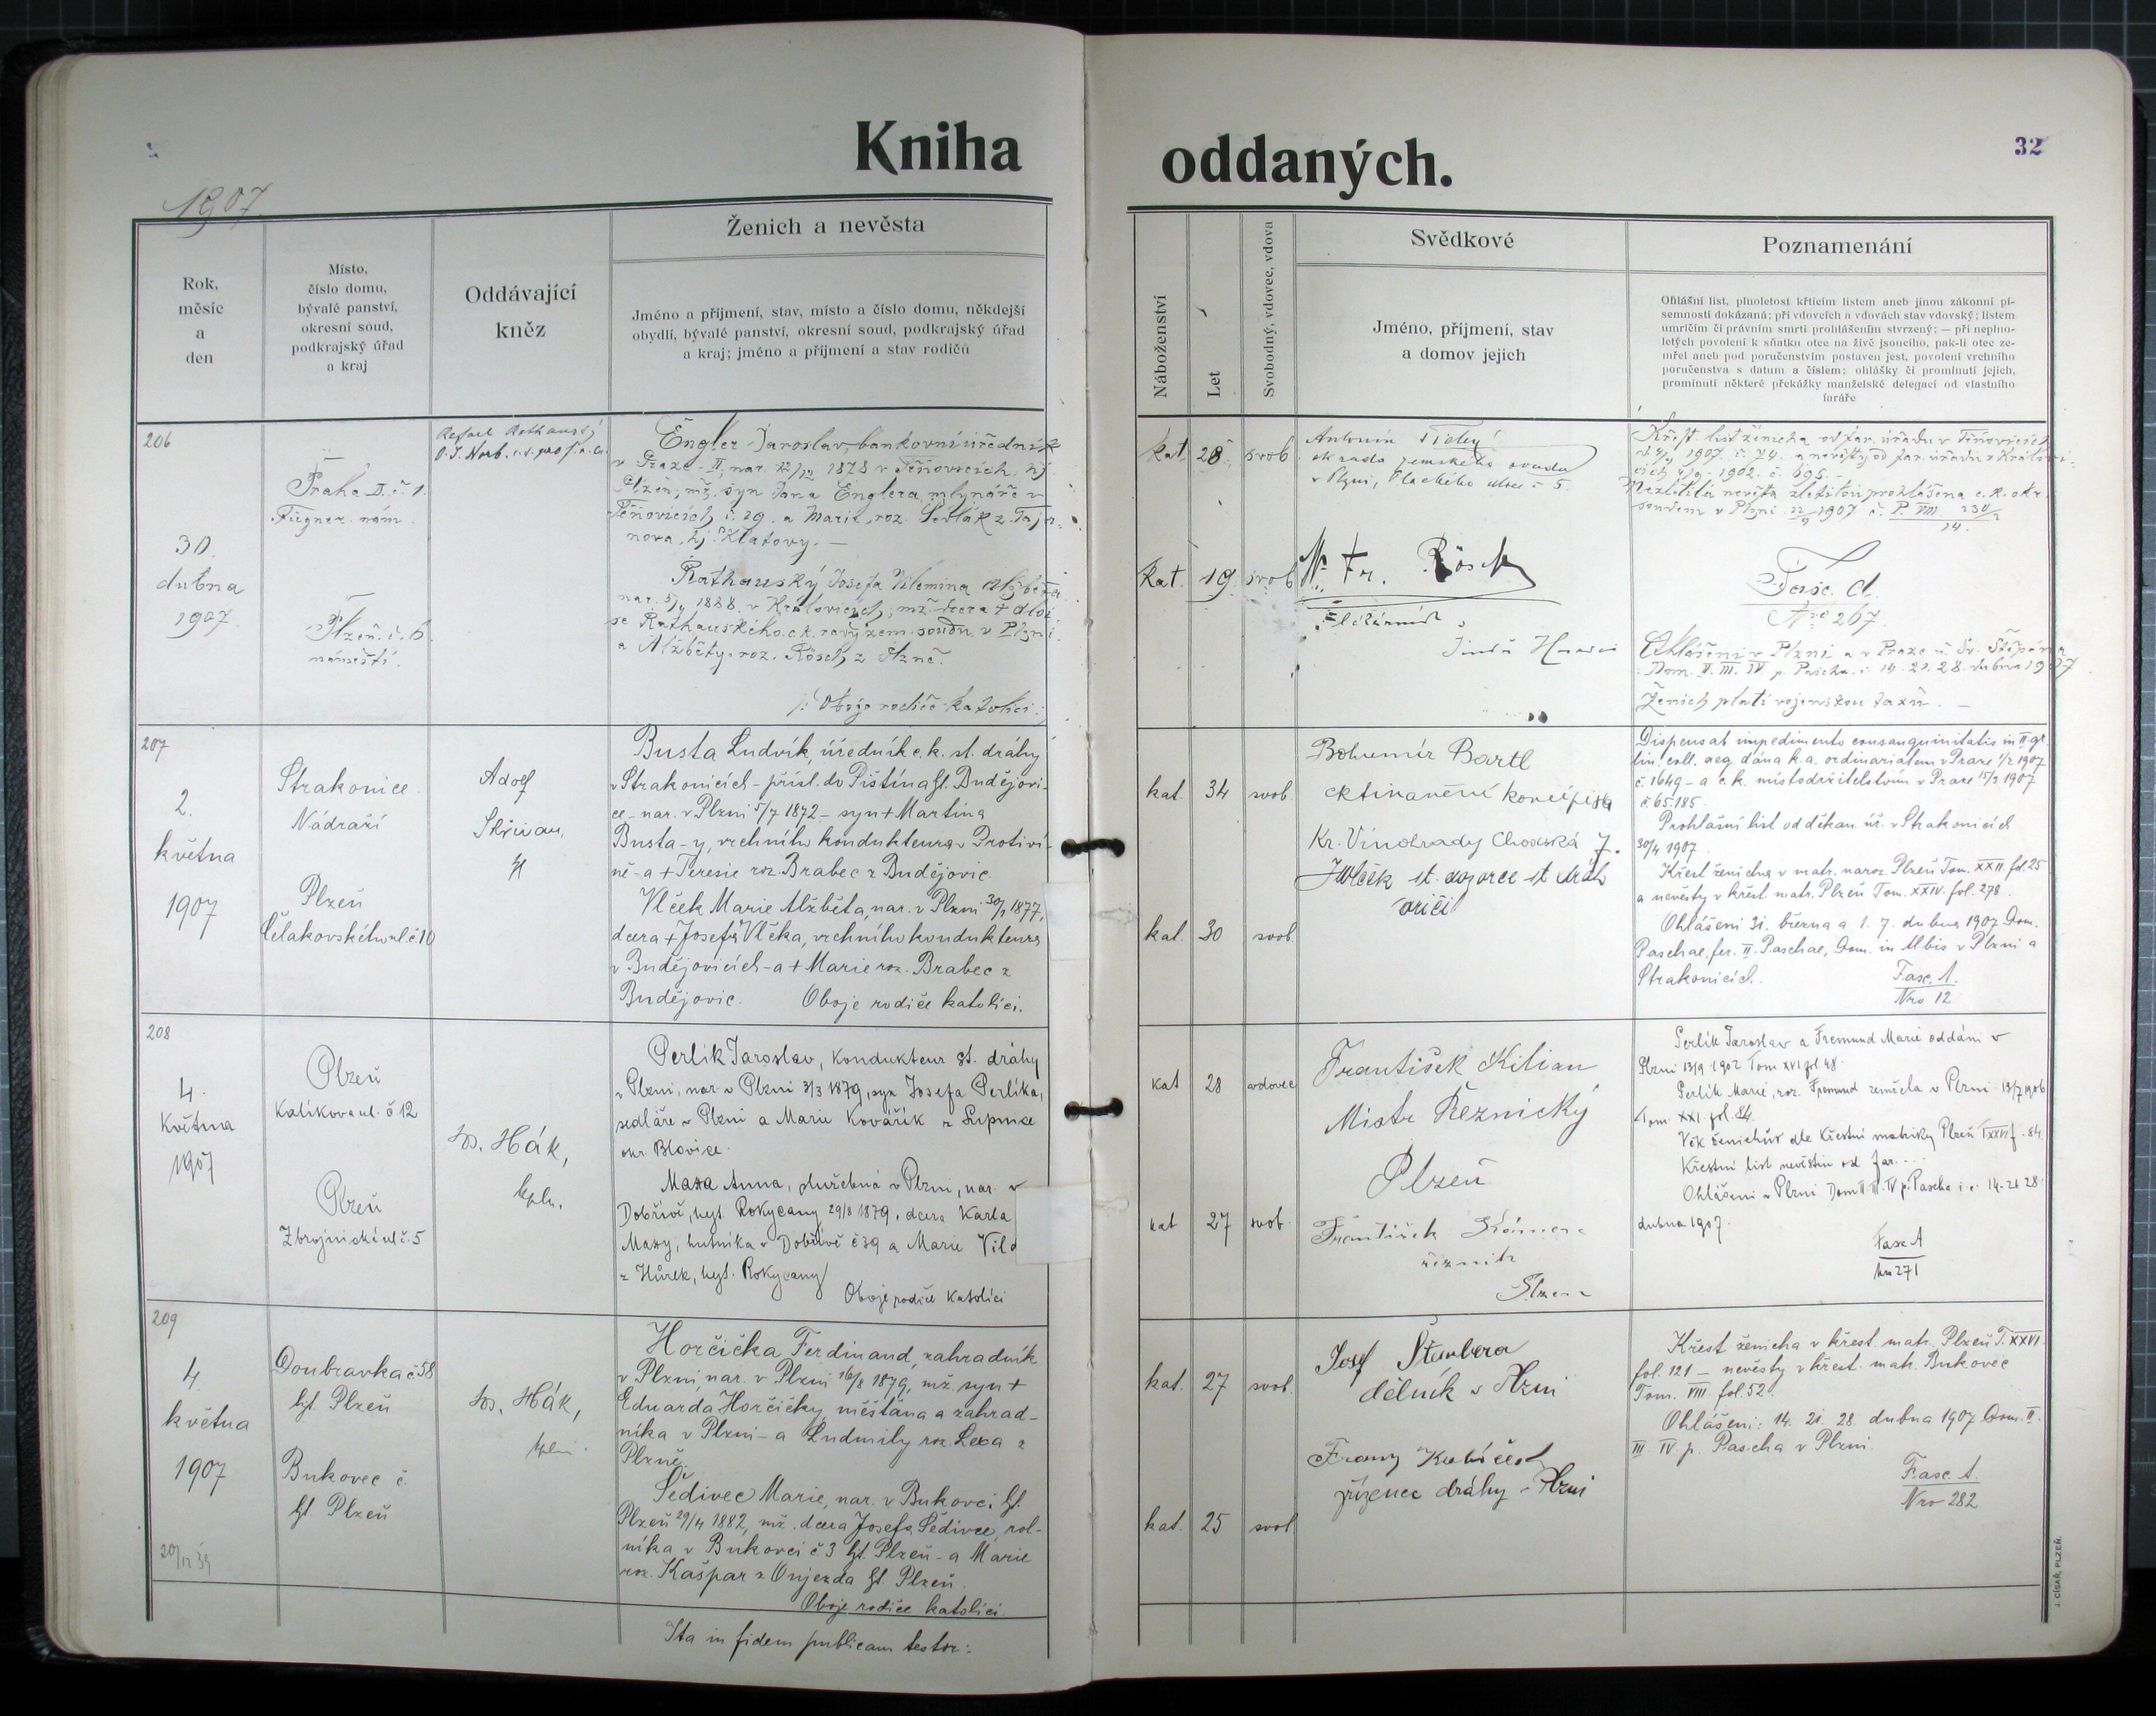 Kniha oddaných.
32
1907.
Ženich a nevěsta
Svědkové
Poznamenání
Rok,
měsíc
a
den
Místo,
číslo domu,
bývalé panství,
okresní soud,
podkrajský úřad
a kraj
Oddávající
kněz
Jméno a příjmení, stav, místo a číslo domu, někdejší
obydlí, bývalé panství, okresní soud, podkrajský úřad
a kraj; jméno a příjmení a stav rodičů
Náboženství
Let
Svobodný, vdovec, vdova
Jméno, příjmení, stav
a domov jejich
Ohlášní list, plnoletost křticím listem aneb jinou zákonní pí-
semností dokázaná; při vdovcích a vdovách stav vdovský; listem
umrlčím či právním smrti prohlášením stvrzený; — při neplno-
letých povolení k sňatku otce na živě jsoucího, pak-li otec ze-
mřel aneb pod poručenstvím postaven jest, povolení vrchního
poručenstva s datum a číslem; ohlášky či prominutí jejich,
prominutí některé překážky manželské delegací od vlastního
faráře
206
30.
dubna
1907.
Praha II. č. 1.
Fügner. nám.
Plzeň. č. 6.
náměstí.
Engler Jaroslav, bankovní úředník
v Praze-II, nar. 1878 v Těňovicích, hj
Plzeň, mž. syn Jana Englera, mlynáře v
Těňovicích č. 29. a Marie, roz. Sedlák z Taja-
nova, hj. Klatovy. —
Rathauský Josefa Vilemina Alžběta
nar. 1888. v Kralovicích; mž. dcera + Aloi-
se Rathauského, c.k. rady zem. soudu v Plzni
a Alžběty, roz. Rösch z Plzně.
/: Oboje rodiče katolíci :/
kat. 28 svob.
kat. 19 svob.
Antonín Tichý
ck rada zemského soudu
v Plzni, Plachého ulice č 5.
Fr. Rösch
Křest. list ženicha od far. úřadu v Těňovicích
1907. č. 24. a nevěsty od far. úřadu v Kralovi-
cích 1902. č. 695.
Nezletilá nevěsta zletilou prohlášena c. k. okr.
soudem v Plzni 1907 č. P. VIII.
14.
Fasc. A.
Nro 267.
Ohlášeni v Plzni a v Praze u Sv. Štěpána
Dom. II. III. IV p. Pascha. i. 14. 21. 28. dubna 1907
Ženich platí vojenskou taxu. —
207
2.
května
1907
Strakonice
Nádraží
Plzeň
Čelakovského ul. č. 10
Adolf
Busta Ludvík, úředník c. k. st. dráhy
v Strakonicích - přísl. do Pištína hjt. Budějovi-
ce - nar. v Plzni 5/7 1872 - syn + Martina
Busta-y, vrchního kondukteura v Protiví-
ně - a + Terezie roz. Brabec z Budějovic.
Vlček Marie Alžběta, nar. v Plzni 1877,
dcera + Josefa Vlčka, vrchního kondukteura
v Budějovicích - a + Marie roz. Brabec z
Budějovic. Oboje rodiče katolíci.
kat. 34 svob.
kat. 30 svob.
Bohumír Bartl
ck finanční koncipista
Kr. Vinohrady Chodská 7.
J Vlček st. dozorce st. drah
Dispensat impedimento consanguinitatis in II gr.
lin. coll. aeq. dána k. a. ordinariátem v Praze 1/2 1907
č. 1649 - a c. k. místodržitelstvím v Praze 15/3 1907
č. 65.185.
Prohlášní list od děkan. úř. v Strakonicích
30/4 1907.
Křest ženichův v matr. naroz. Plzeň Tom. XXII. fol. 25
a nevěsty v křest. matr. Plzeň Tom. XXIV. fol. 278.
Ohlášeni 31. března a 1. 7. dubna 1907 Dom.
Paschae, fer. II. Paschae, Dom. in Albis v Plzni a
Strakonicích.
Fasc. A.
Nro 12
208
4.
května
1907
Plzeň
Kalikova ul. č 12
Plzeň
Zbrojnická ul č. 5
Jos. Hák,
kpln.
Perlík Jaroslav, kondukteur st. dráhy
v Plzni, nar. v Plzni 3/3 1879, syn Josefa Perlíka,
sedláře v Plzni a Marie Kovářík z Lipnice
okr. Blovice.
Maxa Anna, služebná v Plzni, nar. v
Dobřívě, hejt. Rokycany 1879, dcera Karla
Maxy, hutníka v Dobřívě č 39 a Marie
z Hůrek, hejt. Rokycany
Oboje rodiče katolíci
kat 28 vdovec
kat 27 svob.
František Kilian
Mistr Řeznický
Plzeň
František
řezník
Plzeň
Perlík Jaroslav a Fremund Marie oddáni v
Plzni 13/9 1902 Tom XVI fol. 48.
Perlík Marie, roz. Fremund zemřela v Plzni 13/7 1906
Tom. XXI. fol. 84.
Věk ženichův dle křestní matriky Plzeň T XXVI f. 84.
Křestní list nevěstin od far....
Ohlášeni v Plzni Dom II. III. IV p. Pascha i. e. 14-21 28.
dubna 1907.
Fasc A
Nro 271
209
4
května
1907
Doubravka č 58
hjt. Plzeň
Bukovec č.
hjt Plzeň
Jos. Hák,
Horčička Ferdinand, zahradník
v Plzni, nar. v Plzni 16/8 1879, mž. syn +
Eduarda Horčičky, měšťana a zahrad-
níka v Plzni - a Ludmily roz. Lexa z
Plzně.
Šedivec Marie, nar. v Bukovci hjt.
Plzeň 29/4 1882, mž. dcera Josefa Šedivce, rol-
níka v Bukovci č 3 hjt. Plzeň - a Marie
roz. Kašpar z Oujezda hjt. Plzeň.
Oboje rodiče katolíci.
kat. 27 svob.
kat. 25 svob.
Josef Štanbera
dělník v Plzni
Franz Kubíček
zřízenec dráhy v Plzni
Křest ženicha v křest. matr. Plzeň T. XXVI.
fol. 121 — nevěsty v křest. matr. Bukovec
Tom. VIII. fol. 52.
Ohlášeni: 14. 21. 28. dubna 1907 Dom. II.
III. IV p. Pascha v Plzni.
Fasc. A.
Nro 282
Ita in fidem publicam testor:
J. CÍSAŘ, PLZEŇ.